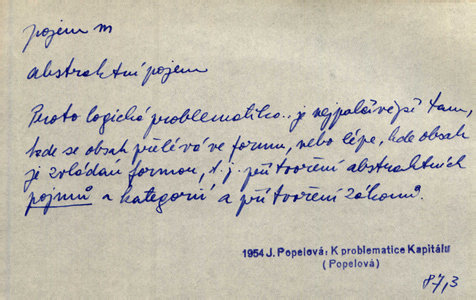 pojem m
abstraktní pojem
Proto logická problematika.. je nejpalčivější tam,
kde se obsah přelévá ve formu, nebo lépe, kde obsah
je zvládán formou, t.j. při tvoření abstraktních
pojmů a kategorií a při tvoření zákonů.
1954 J. Popelová: K problematice Kapitálu
(Popelová)
87,3